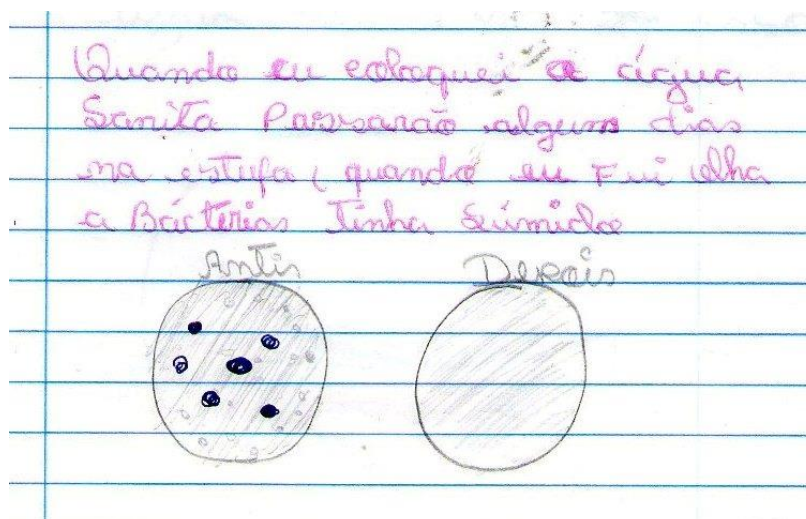 Quando eu coloquei a água
Sanita Passarão alguns dias
na estufa, quando eu Fui olha
a Báctérias Tinha Súmido
Antis Depois